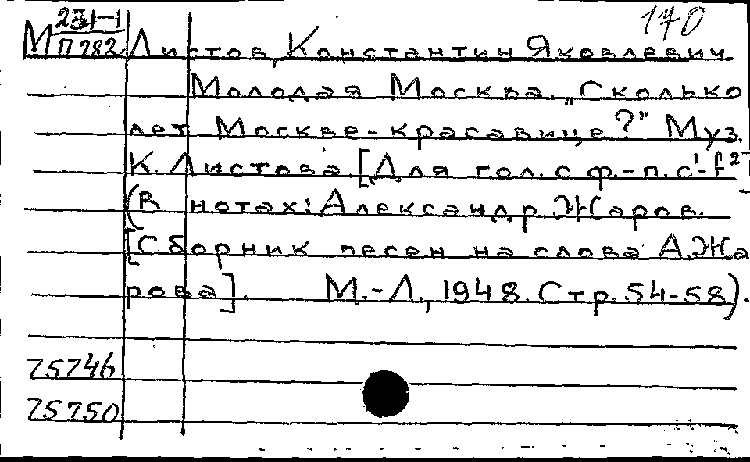 170
М 231-1
П 782
Листов, Константин Яковлевич.
Молодая Москва. "Сколько
лет Москве-красавице?" Муз.
К. Листова. [Для гол. с ф.-п. c¹-f²]
(В нотах: Александр Жаров.
[Сборник песен на слова А. Жа
рова]. М.-Л., 1948. Стр. 54-58).
75746
75750